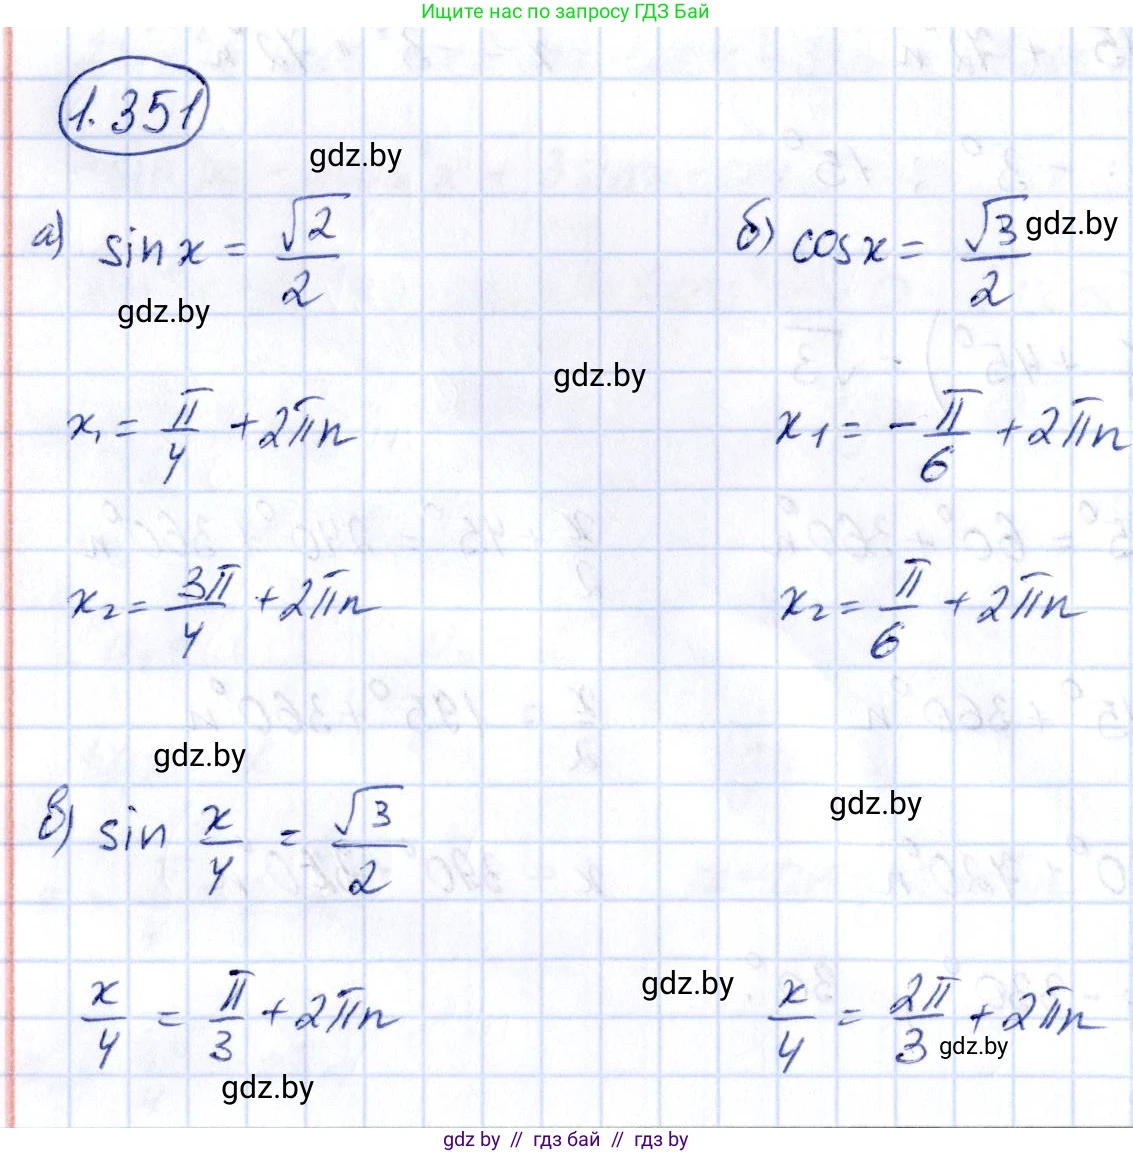 Ищите нас по запросу ГДЗ Бай
1.351
gdz.by
а) sin x = √2/2
б) cos x = √3/2
gdz.by
gdz.by
gdz.by
x₁ = π/4 + 2πn
x₁ = -π/6 + 2πn
x₂ = 3π/4 + 2πn
x₂ = π/6 + 2πn
gdz.by
gdz.by
в) sin x/4 = √3/2
gdz.by
x/4 = π/3 + 2πn
x/4 = 2π/3 + 2πn
gdz.by
gdz.by
gdz by // гдз бай // гdz by